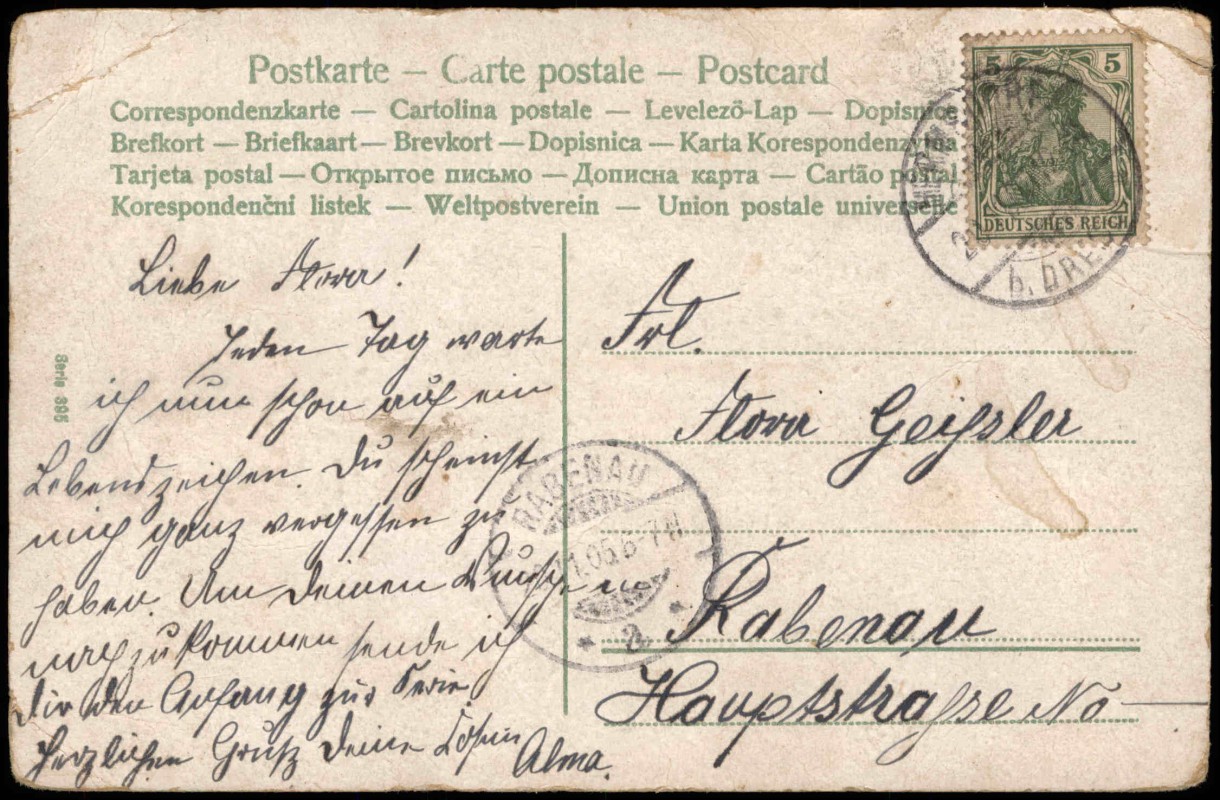 Postkarte – Carte postale – Postcard
Correspondenzkarte — Cartolina postale — Levelező-Lap — Dopisnice
Brefkort — Briefkaart — Brevkort — Dopisnica — Karta Korespondenzyjna
Tarjeta postal — Открытое письмо — Дописна карта — Cartão postal
Korespondenční listek — Weltpostverein — Union postale universelle
5 5
DEUTSCHES REICH
b. DRE
Liebe Flora!
Jeden Tag warte
ich nun schon auf ein
Lebenszeichen. Du scheinst
mich ganz vergessen zu
haben. Um deinen Wunsche
nachzukommen sende ich
Dir den Anfang zur Serie.
Herzlichen Gruß deine Cousin
Alma.
Serie 395
RABENAU
11.05.6-7N
* a *
Frl.
Flora Geißsler
Rabenau
Hauptstraße No